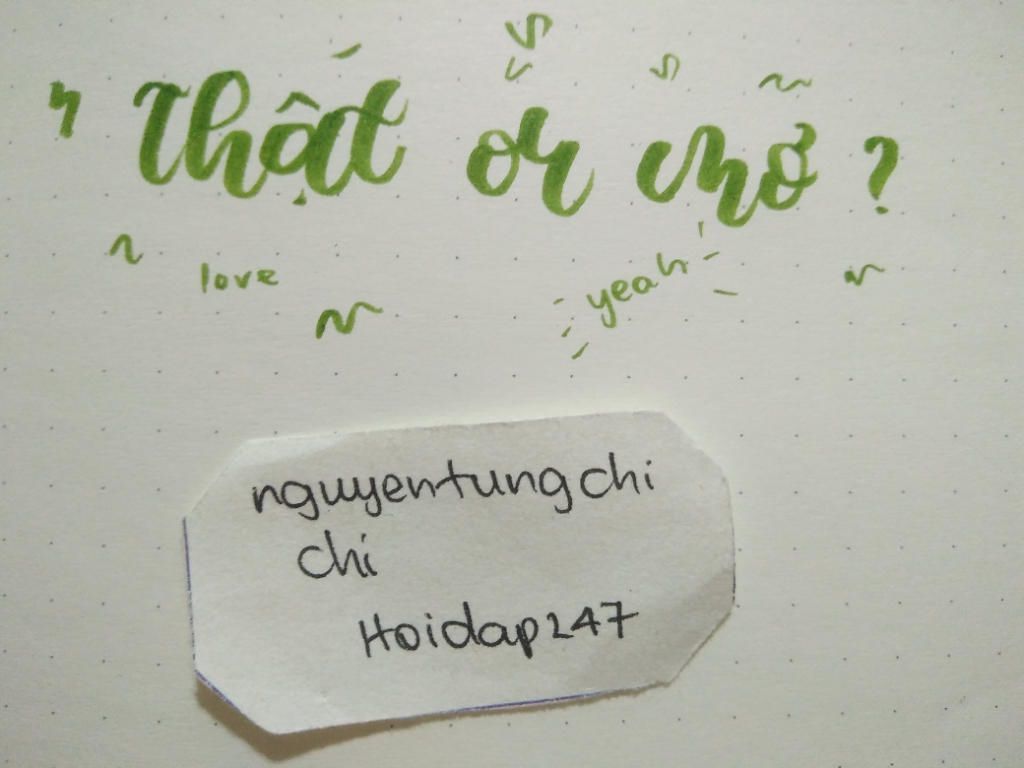 Thật or chỡ ?
love
yeah
nguyentungchi
chi
Hoidap247